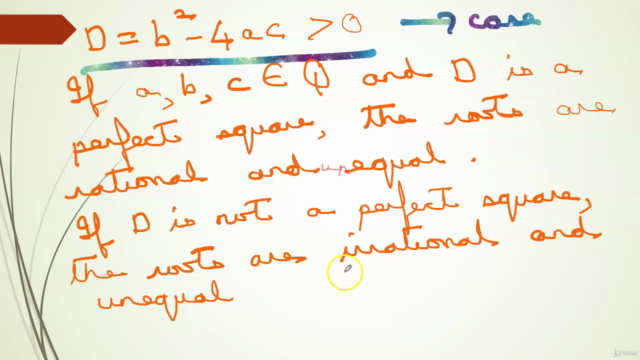 D = b² - 4ac > 0 → case
If a, b, c ∈ Q and D is a
perfect square, the roots are
rational and unequal.
If D is not a perfect square,
the roots are irrational and
unequal